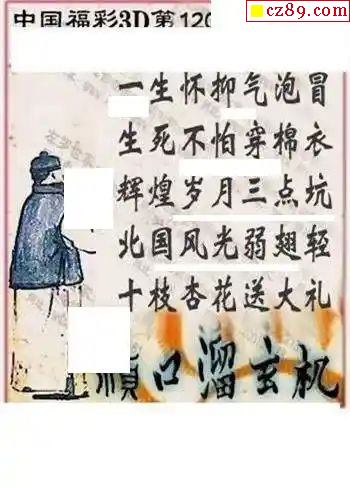 cz89.com
中国福彩3D第120
一生怀抑气泡冒
生死不怕穿棉衣
辉煌岁月三点坑
北国风光弱翅轻
十枝杏花送大礼
顺口溜玄机